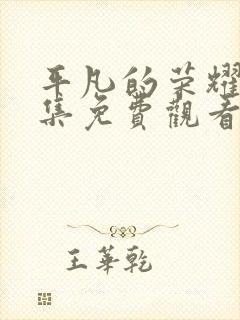 平凡的荣耀
集免費觀看
王華乾